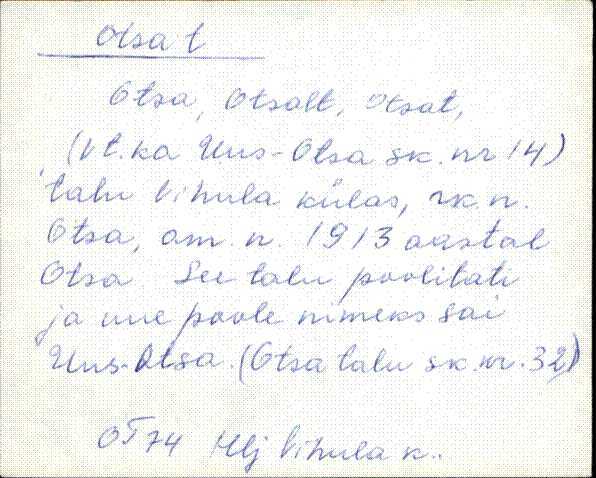 Otsa t
Otsa, Otsalt, Otsat,
(vt. ka Uus-Otsa sk. nr 14)
talu Vihula külas, rk. n.
Otsa, am. n. 1913 aastal
Otsa See talu poolitati
ja uue poole nimeks sai
Uus-Otsa. (Otsa talu sk. nr. 32)
OT 74 Hlj Vihula k..